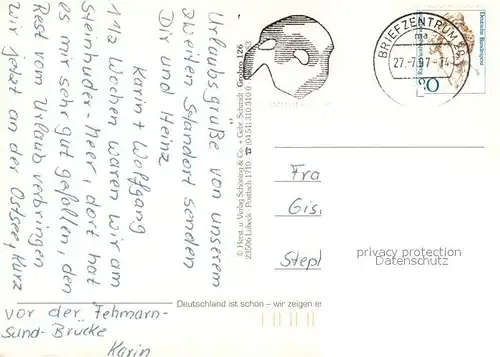 Urlaubsgrüße von unserem
zweiten Standort senden
Dir und Heinz
Karin + Wolfgang
1 1/2 Wochen waren wir am
Steinhuder-Meer, dort hat
es mir sehr gut gefallen, den
Rest vom Urlaub verbringen
wir jetzt an der Ostsee, kurz
vor der Fehmarn-
Sund-Brücke
Karin
© Herst. u. Verlag Schöning & Co. + Gebr. Schmidt
23506 Lübeck · Postfach 1710
Deutschland ist schön – wir zeigen es
BRIEFZENTRUM
ma
27.-7.97-14
Deutsche Bundespost
Fra
Gis
Steph
privacy protection
Datenschutz